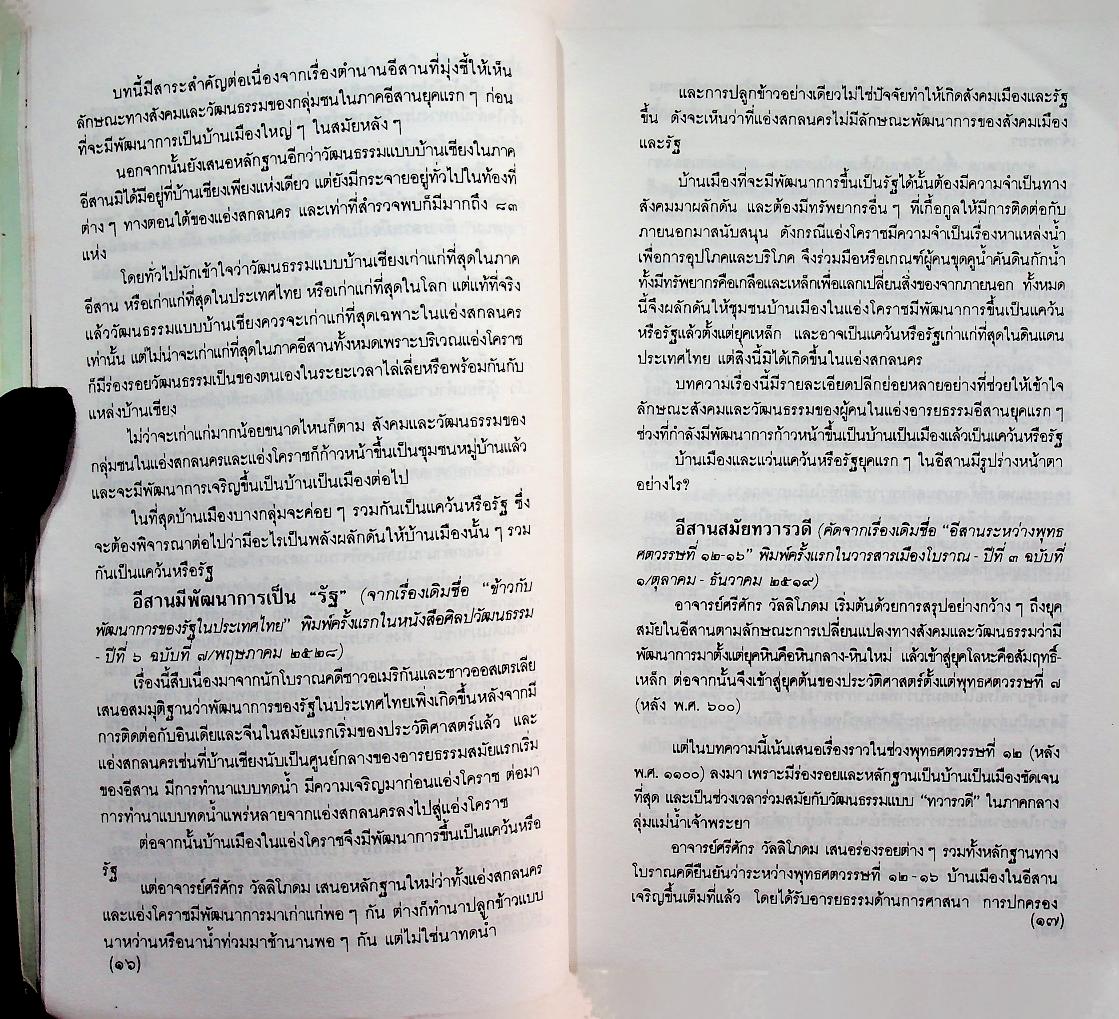 บทนี้มีสาระสำคัญต่อเนื่องจากเรื่องตำนานอีสานที่มุ่งชี้ให้เห็น
ลักษณะทางสังคมและวัฒนธรรมของกลุ่มชนในภาคอีสานยุคแรก ๆ ก่อน
ที่จะมีพัฒนาการเป็นบ้านเมืองใหญ่ ๆ ในสมัยหลัง ๆ
นอกจากนั้นยังเสนอหลักฐานอีกว่าวัฒนธรรมแบบบ้านเชียงในภาค
อีสานมิได้มีอยู่ที่บ้านเชียงเพียงแห่งเดียว แต่ยังมีกระจายอยู่ทั่วไปในท้องที่
ต่าง ๆ ทางตอนใต้ของแอ่งสกลนคร และเท่าที่สำรวจพบก็มีมากถึง ๘๓
แห่ง
โดยทั่วไปมักเข้าใจว่าวัฒนธรรมแบบบ้านเชียงเก่าแก่ที่สุดในภาค
อีสาน หรือเก่าแก่ที่สุดในประเทศไทย หรือเก่าแก่ที่สุดในโลก แต่แท้ที่จริง
แล้ววัฒนธรรมแบบบ้านเชียงควรจะเก่าแก่ที่สุดเฉพาะในแอ่งสกลนคร
เท่านั้น แต่ไม่น่าจะเก่าแก่ที่สุดในภาคอีสานทั้งหมดเพราะบริเวณแอ่งโคราช
ก็มีร่องรอยวัฒนธรรมเป็นของตนเองในระยะเวลาไล่เลี่ยหรือพร้อมกันกับ
แหล่งบ้านเชียง
ไม่ว่าจะเก่าแก่มากน้อยขนาดไหนก็ตาม สังคมและวัฒนธรรมของ
กลุ่มชนในแอ่งสกลนครและแอ่งโคราชก็ก้าวหน้าขึ้นเป็นชุมชนหมู่บ้านแล้ว
และจะมีพัฒนาการเจริญขึ้นเป็นบ้านเป็นเมืองต่อไป
ในที่สุดบ้านเมืองบางกลุ่มจะค่อย ๆ รวมกันเป็นแคว้นหรือรัฐ ซึ่ง
จะต้องพิจารณาต่อไปว่ามีอะไรเป็นพลังผลักดันให้บ้านเมืองนั้น ๆ รวม
กันเป็นแคว้นหรือรัฐ
อีสานมีพัฒนาการเป็น “รัฐ” (จากเรื่องเดิมชื่อ “ข้าวกับ
พัฒนาการของรัฐในประเทศไทย” พิมพ์ครั้งแรกในหนังสือศิลปวัฒนธรรม
- ปีที่ ๖ ฉบับที่ ๗/พฤษภาคม ๒๕๒๘)
เรื่องนี้สืบเนื่องมาจากนักโบราณคดีชาวอเมริกันและชาวออสเตรเลีย
เสนอสมมุติฐานว่าพัฒนาการของรัฐในประเทศไทยเพิ่งเกิดขึ้นหลังจากมี
การติดต่อกับอินเดียและจีนในสมัยแรกเริ่มของประวัติศาสตร์แล้ว และ
แอ่งสกลนครเช่นที่บ้านเชียงนับเป็นศูนย์กลางของอารยธรรมสมัยแรกเริ่ม
ของอีสาน มีการทำนาแบบทดน้ำ มีความเจริญมาก่อนแอ่งโคราช ต่อมา
การทำนาแบบทดน้ำแพร่หลายจากแอ่งสกลนครลงไปสู่แอ่งโคราช
ต่อจากนั้นบ้านเมืองในแอ่งโคราชจึงมีพัฒนาการขึ้นเป็นแคว้นหรือ
รัฐ
แต่อาจารย์ศรีศักร วัลลิโภดม เสนอหลักฐานใหม่ว่าทั้งแอ่งสกลนคร
และแอ่งโคราชมีพัฒนาการมาเก่าแก่พอ ๆ กัน ต่างก็ทำนาปลูกข้าวแบบ
นาหว่านหรือนาน้ำท่วมมาช้านานพอ ๆ กัน แต่ไม่ใช่นาทดน้ำ
(๑๖)
และการปลูกข้าวอย่างเดียวไม่ใช่ปัจจัยทำให้เกิดสังคมเมืองและรัฐ
ขึ้น ดังจะเห็นว่าที่แอ่งสกลนครไม่มีลักษณะพัฒนาการของสังคมเมือง
และรัฐ
บ้านเมืองที่จะมีพัฒนาการขึ้นเป็นรัฐได้นั้นต้องมีความจำเป็นทาง
สังคมมาผลักดัน และต้องมีทรัพยากรอื่น ๆ ที่เกื้อกูลให้มีการติดต่อกับ
ภายนอกมาสนับสนุน ดังกรณีแอ่งโคราชมีความจำเป็นเรื่องหาแหล่งน้ำ
เพื่อการอุปโภคและบริโภค จึงร่วมมือหรือเกณฑ์ผู้คนขุดคูน้ำคันดินกักน้ำ
ทั้งมีทรัพยากรคือเกลือและเหล็กเพื่อแลกเปลี่ยนสิ่งของจากภายนอก ทั้งหมด
นี้จึงผลักดันให้ชุมชนบ้านเมืองในแอ่งโคราชมีพัฒนาการขึ้นเป็นแคว้น
หรือรัฐแล้วตั้งแต่ยุคเหล็ก และอาจเป็นแคว้นหรือรัฐเก่าแก่ที่สุดในดินแดน
ประเทศไทย แต่สิ่งนี้มิได้เกิดขึ้นในแอ่งสกลนคร
บทความเรื่องนี้มีรายละเอียดปลีกย่อยหลายอย่างที่ช่วยให้เข้าใจ
ลักษณะสังคมและวัฒนธรรมของผู้คนในแอ่งอารยธรรมอีสานยุคแรก ๆ
ช่วงที่กำลังมีพัฒนาการก้าวหน้าขึ้นเป็นบ้านเป็นเมืองแล้วเป็นแคว้นหรือรัฐ
บ้านเมืองและแว่นแคว้นหรือรัฐยุคแรก ๆ ในอีสานมีรูปร่างหน้าตา
อย่างไร?
อีสานสมัยทวารวดี (คัดจากเรื่องเดิมชื่อ “อีสานระหว่างพุทธ
ศตวรรษที่ ๑๒-๑๖” พิมพ์ครั้งแรกในวารสารเมืองโบราณ - ปีที่ ๓ ฉบับที่
๑/ตุลาคม - ธันวาคม ๒๕๑๙)
อาจารย์ศรีศักร วัลลิโภดม เริ่มต้นด้วยการสรุปอย่างกว้าง ๆ ถึงยุค
สมัยในอีสานตามลักษณะการเปลี่ยนแปลงทางสังคมและวัฒนธรรมว่ามี
พัฒนาการมาตั้งแต่ยุคหินคือหินกลาง-หินใหม่ แล้วเข้าสู่ยุคโลหะคือสัมฤทธิ์-
เหล็ก ต่อจากนั้นจึงเข้าสู่ยุคต้นของประวัติศาสตร์ตั้งแต่พุทธศตวรรษที่ ๗
(หลัง พ.ศ. ๖๐๐)
แต่ในบทความนี้เน้นเสนอเรื่องราวในช่วงพุทธศตวรรษที่ ๑๒ (หลัง
พ.ศ. ๑๑๐๐) ลงมา เพราะมีร่องรอยและหลักฐานเป็นบ้านเป็นเมืองชัดเจน
ที่สุด และเป็นช่วงเวลาร่วมสมัยกับวัฒนธรรมแบบ “ทวารวดี” ในภาคกลาง
ลุ่มแม่น้ำเจ้าพระยา
อาจารย์ศรีศักร วัลลิโภดม เสนอร่องรอยต่าง ๆ รวมทั้งหลักฐานทาง
โบราณคดียืนยันว่าระหว่างพุทธศตวรรษที่ ๑๒-๑๖ บ้านเมืองในอีสาน
เจริญขึ้นเต็มที่แล้ว โดยได้รับอารยธรรมด้านการศาสนา การปกครอง
(๑๗)